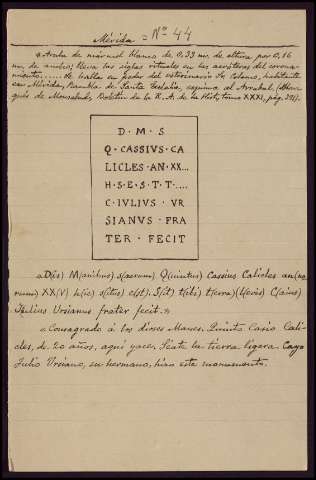 Mérida = Nº 44
«Árula de mármol blanco de 0,33 m. de altura por 0,16
m. de ancho; lleva las siglas rituales en las acróteras del corona-
miento..... Se halla en poder del veterinario Sr. Colomo, habitante
en Mérida, Rambla de Santa Eulalia, esquina al Arrabal. (Mar-
qués de Monsalud, Boletín de la R. A. de la Hist, tomo XXXI, pág.
D · M · S
Q · CASSIVS · CA
LICLES · AN · XX...
H · S · E · S · T · T.....
C · IVLIVS · VR
SIANVS · FRA
TER · FECIT
«D(is) M(anibus) s(acrum) Q(uintus) Cassius Calicles an(no
rum) XX(V) h(ic) s(itus) e(st). S(it) t(ibi) t(erra) (l)evis) C(aius)
Julius Ursianus frater fecit.»
«Consagrado á los dioses Manes. Quinto Casio Cali-
cles, de 20 años, aquí yace. Séate la tierra ligera. Cayo
Julio Ursiano, su hermano, hizo este monumento.